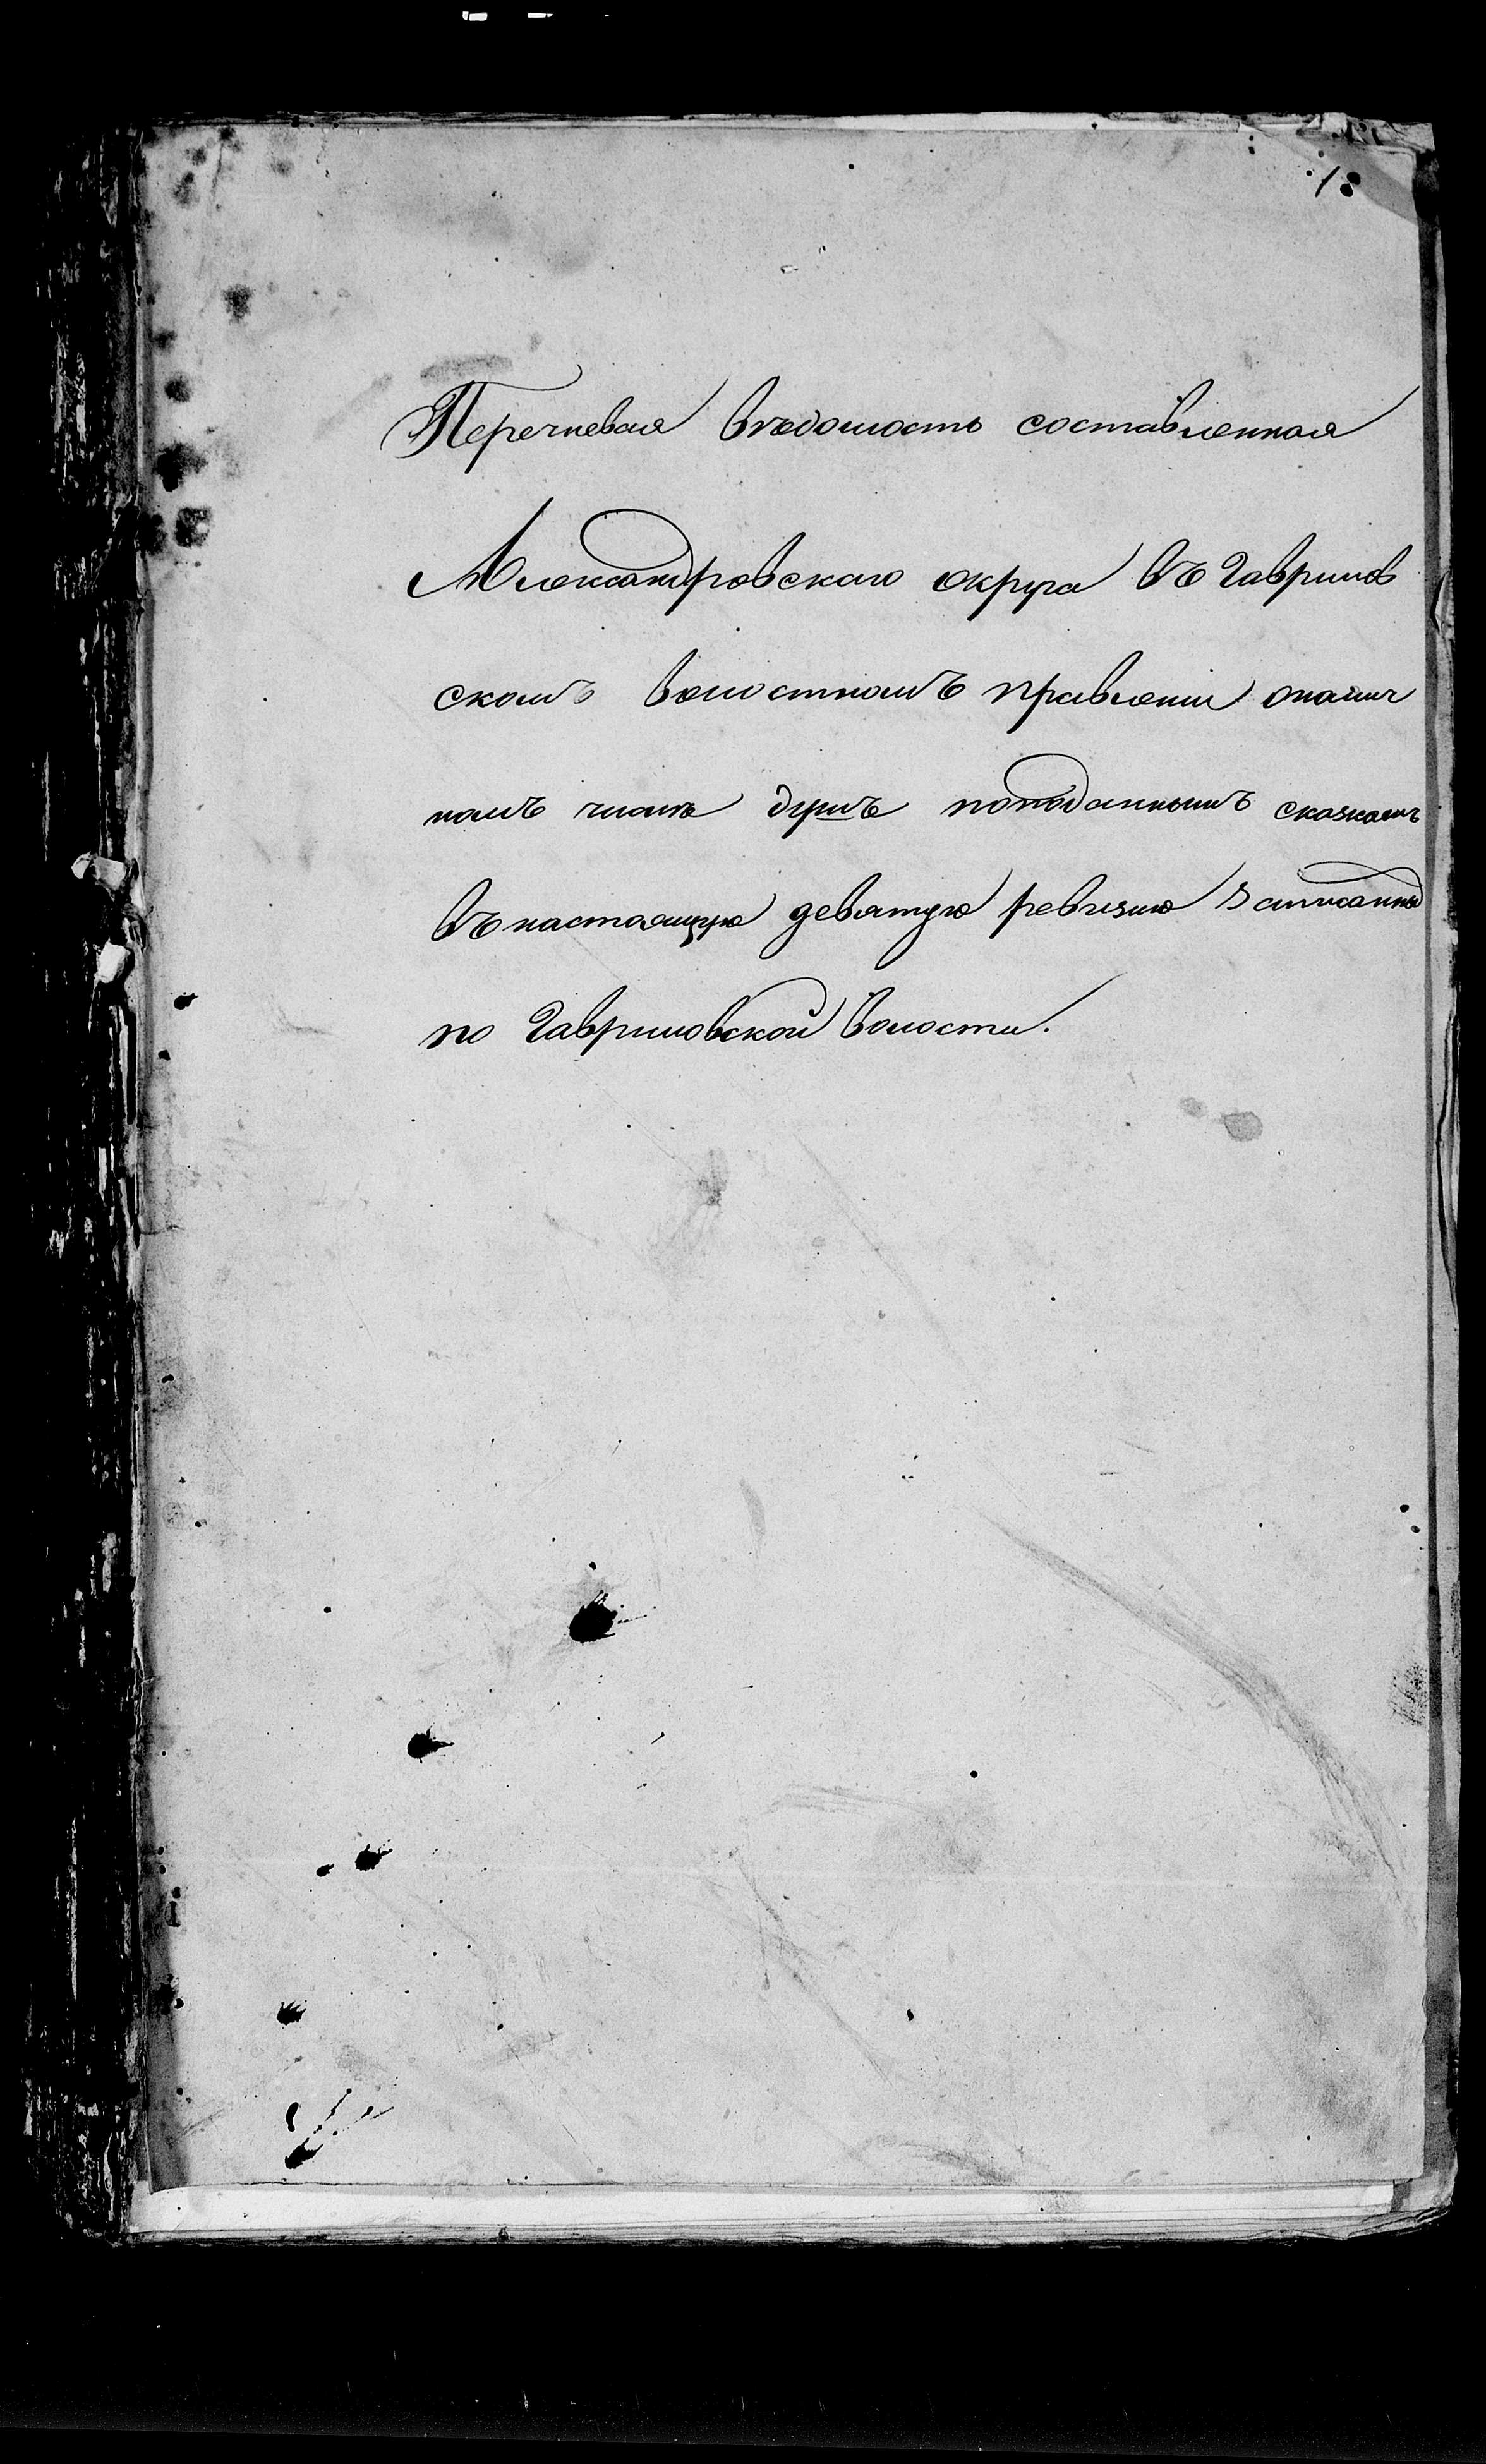 Перечневая вѣдомость составленная
Александровскаго округа въ Гаврилов
скомъ волостномъ правленіи онали
номъ числѣ душъ поподаннымъ сказкамъ
въ настоящую девятую ревизию записанны
по Гавриловской волости.